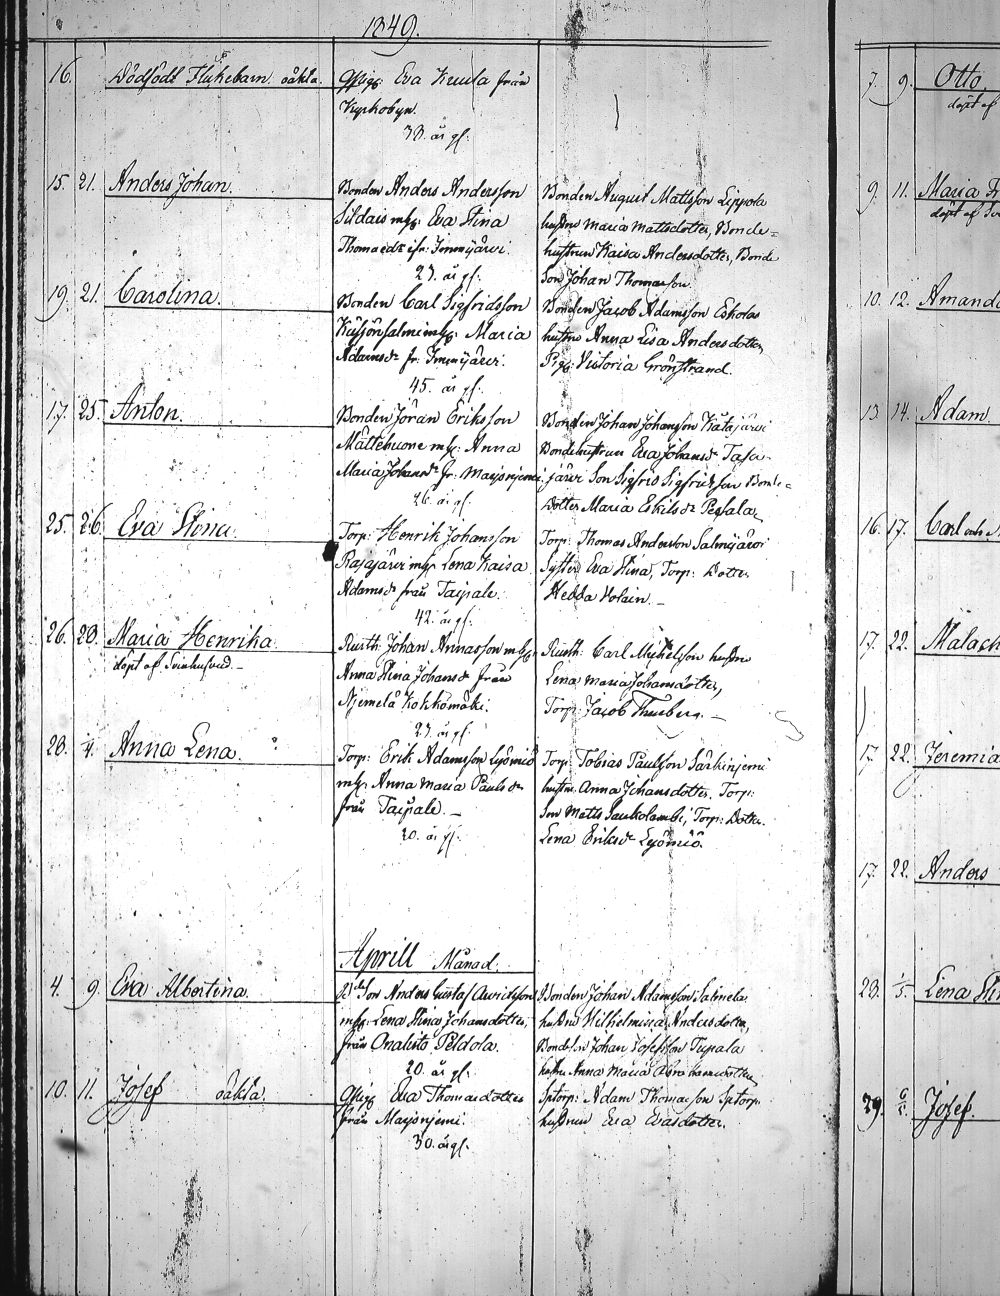 1849.
16. Dödfödt Flickebarn oäkta. Qpig: Eva Keula från
Kyrkobyn.
33. år gl:
15. 21. Anders Johan. Bonden Anders Andersson Bonden August Mattsson Leppola
m/h: Eva Stina hustru Maria Mattsdotter, Bonde=
hustrun Kaisa Andersdotter, Bonde
23. år gl: Son Johan Thomasson.
19. 21. Carolina. Bonden Carl Sigfridsson Bonden Jacob Adamsson Eskolas
m/h: Maria hustru Anna Lisa Andersdotter,
Adamsdr fr: Immjärvi. Pig: Victoria Grönstrand.
45. år gl:
17. 25. Anton. Bonden Jöran Eriksson Bonden Johan Johansson Kätäjärvi
m/h: Anna Bondehustrun Eva Johansdr Tasa-
Maria Johansdr fr: Marjonjemi. järvi Son Sigfrid Sigfridsson Bonde=
26. år gl: Dotter Maria Eskilsdr Pesala,
25. 26. Eva Stina. Torp: Henrik Johansson Torp: Thomas Andersson Salmijärvi
Rajajärvi m/h: Lena Kaisa Syster Eva Stina, Torp: Dotter
Adamsdr från Taipale. Hedda Holain. –
42. år gl:
26. 28. Maria Henrika. Rusth: Johan Annasson m/h: Rusth: Carl Michelsson hustru
döpt af Anna Stina Johansdr från Lena Maria Johansdotter,
Njemelä Kohkomäki. Torp: Jacob Thusberg. –
23. år gl:
28. 4. Anna Lena. Torp: Erik Adamsson Lyömiö Torp: Tobias Paulsson Särkinjemi
m/h: Anna Maria Paulsdr hustru Anna Johansdotter. Torp:
från Taipale. – Son Matts Saukolambi, Torp: Dotter
20. år gl: Lena Eriksdr Lyömiö.
Aprill Månad.
4. 9. Eva Albertina. Son Anders Gustaf Bonden Johan Adamsson Salmela
m/h: Lena Stina Johansdotter, hustru Wilhelmina Andersdotter,
från Onalisto Peldola. Bondeson Johan Josefsson Tupala
20. år gl: hustru Anna Maria Abrahamsdotter,
10. 11. Josef oäkta. Qpig Eva Thomasdotter Sptorp: Adam Thomasson Sptorp:
från Marjonjemi. hustrun Eva Evasdotter.
30. år gl:
7. 9. Otto.
döpt af
9. 11. Maria
döpt af
10. 12. Amanda
13. 14. Adam.
16. 17. Carl
17. 22. Malach
17. 22. Jeremia
17. 22. Anders
28. 1/5. Lena
29. 6/5. Josef.